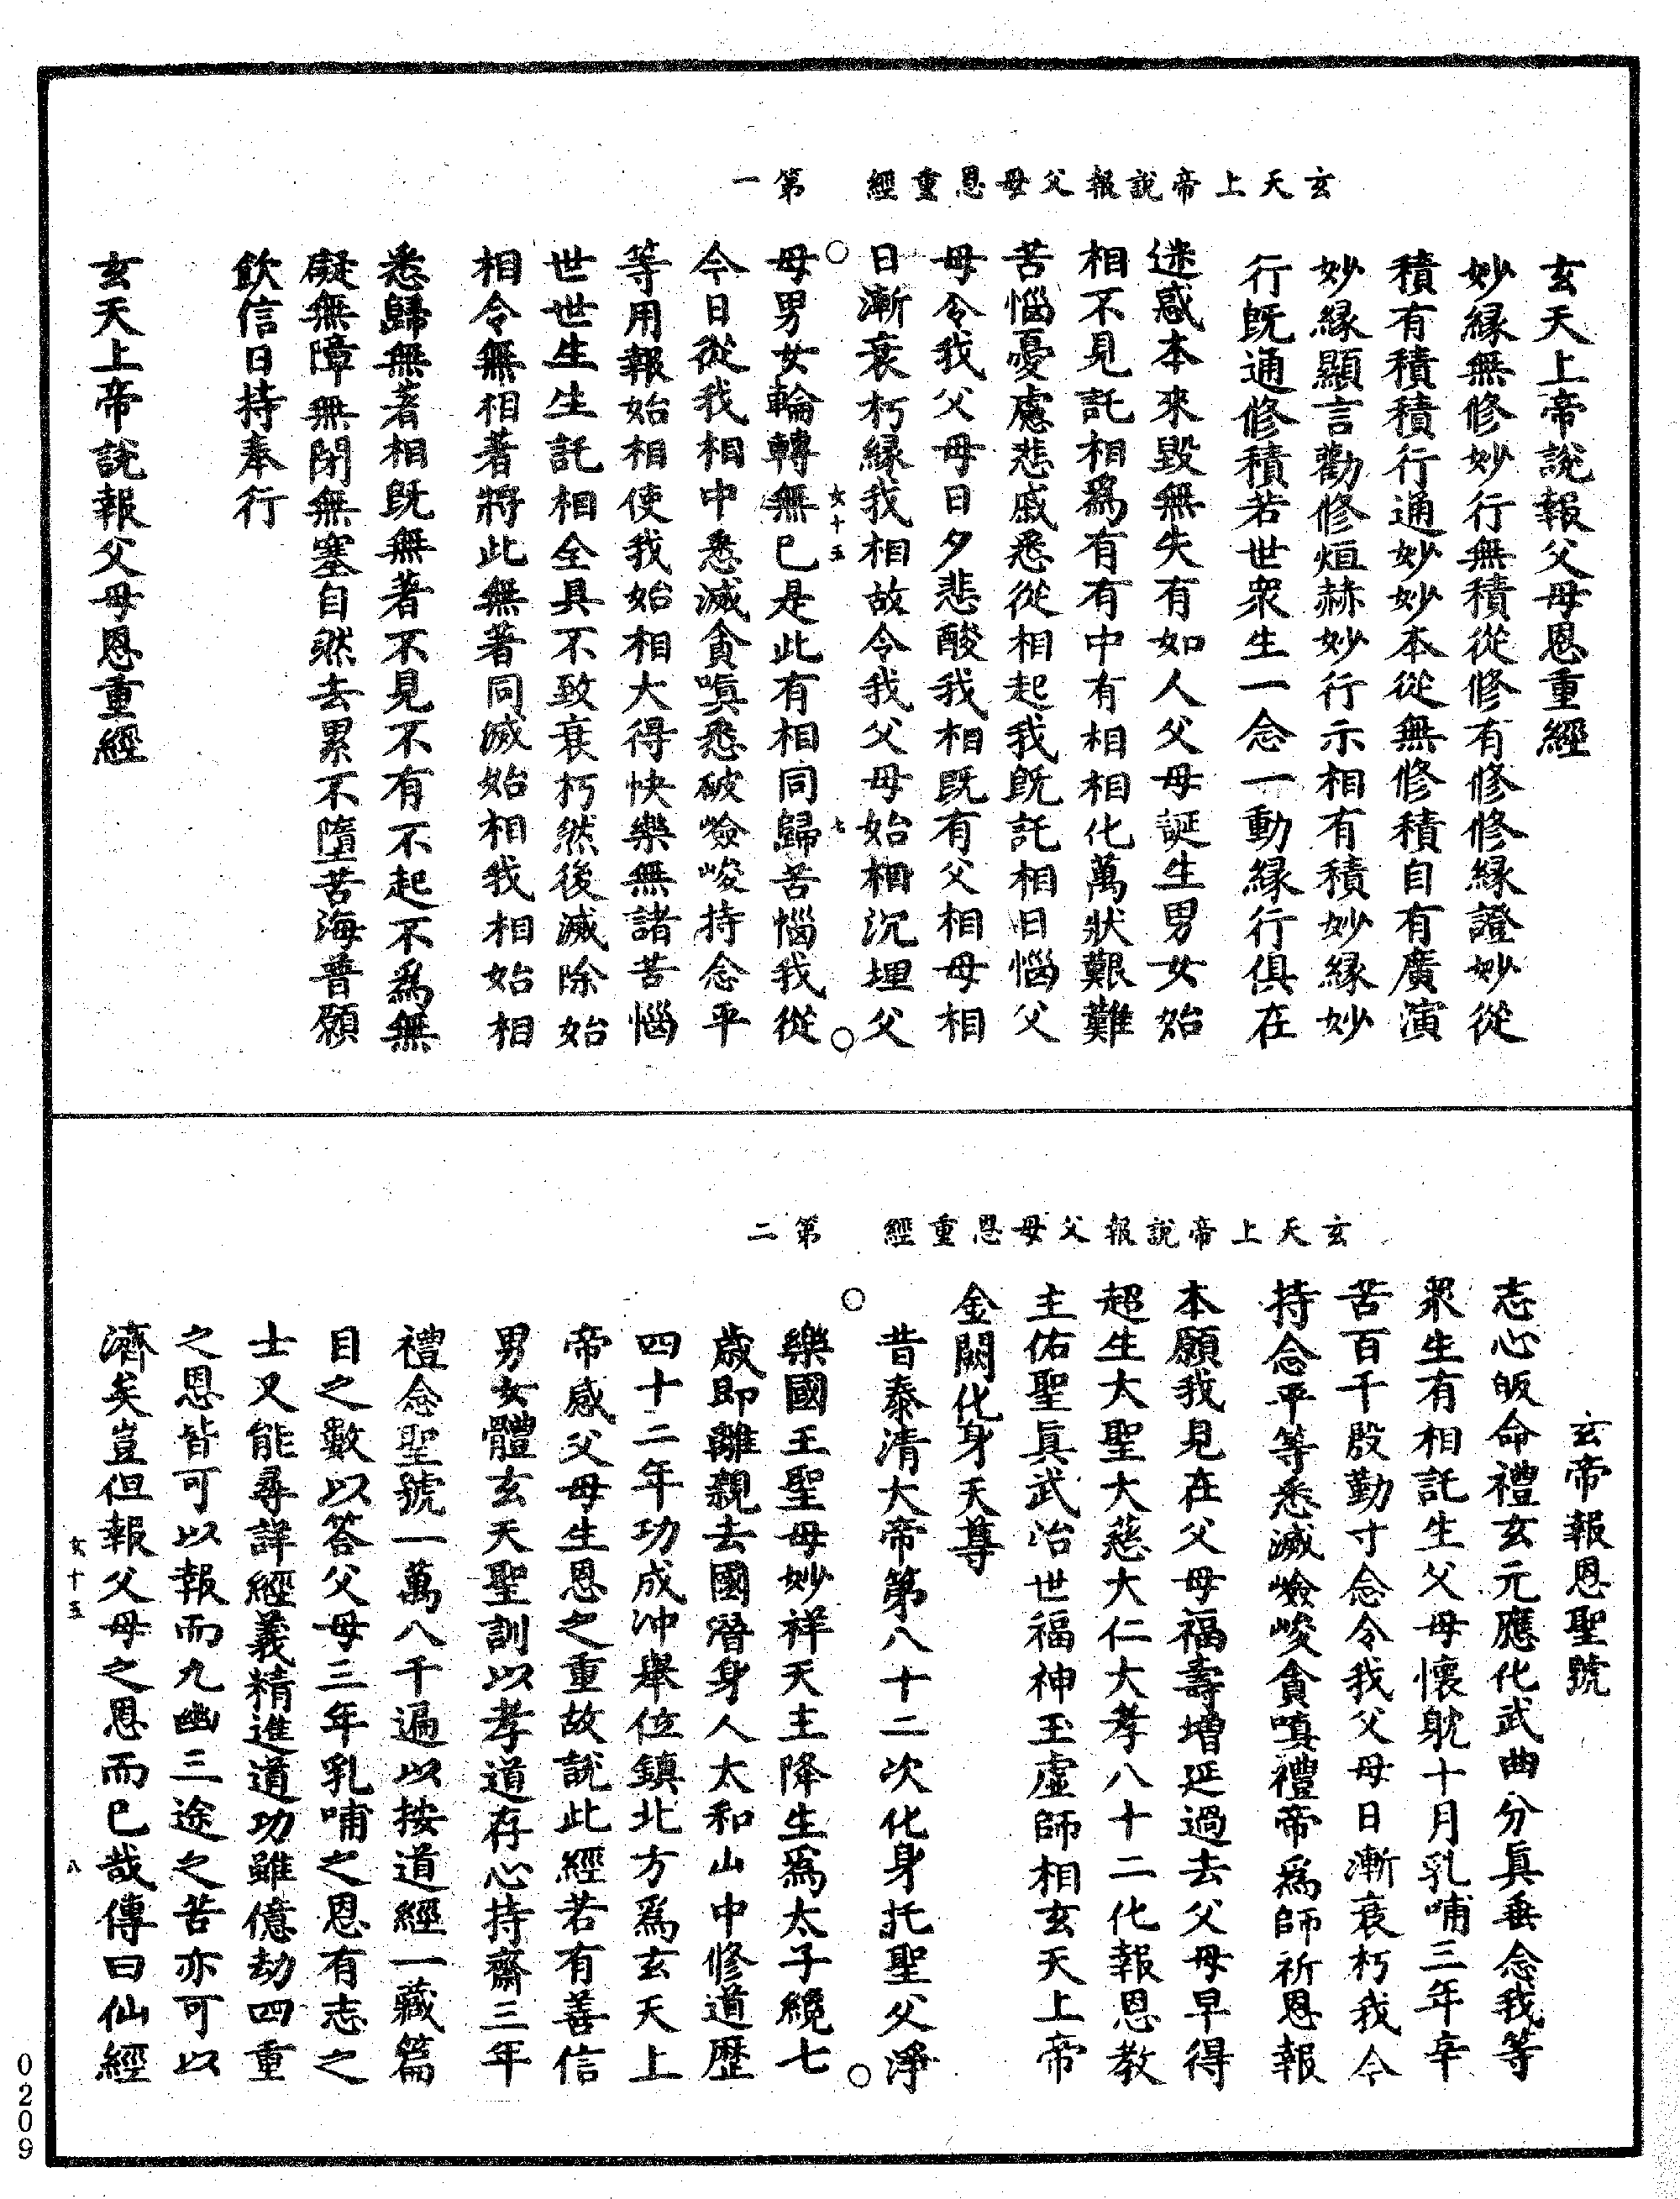 玄天上帝說報父母恩重經　第一
玄天上帝說報父母恩重經
妙緣無修妙行無積從修有修修緣證妙從
積有積積行通妙妙本從無修積自有廣演
妙緣顯言勸修烜赫妙行示相有積妙緣妙
行既通修積若世眾生一念一動緣行俱在
迷惑本來毀無失有如人父母誕生男女始
相不見託相為有有中有相相化萬狀艱難
苦惱憂慮悲戚悉從相起我既託相日惱父
母令我父母日夕悲酸我相既有父相母相
日漸衰朽緣我相故令我父母始相沉埋父
女十五　七
母男女輪轉無已是此有相同歸苦惱我從
今日從我相中悉滅貪嗔悉破嶮峻持念平
等用報始相使我始相大得快樂無諸苦惱
世世生生託相全具不致衰朽然後滅除始
相令無相著將此無著同滅始相我相始相
悉歸無著相既無著不見不有不起不為無
礙無障無閉無塞自然去累不墮苦海普願
欽信日持奉行
玄天上帝說報父母恩重經
玄天上帝說報父母恩重經　第二
玄帝報恩聖號
志心皈命禮玄元應化武曲分真垂念我等
眾生有相託生父母懷躭十月乳哺三年辛
苦百千殷勤寸念令我父母日漸衰朽我今
持念平等悉滅嶮峻貪嗔禮帝為師祈恩報
本願我見在父母福壽增延過去父母早得
超生大聖大慈大仁大孝八十二化報恩教
主佑聖真武治世福神玉虛師相玄天上帝
金闕化身天尊
昔泰清大帝第八十二次化身托聖父淨
樂國王聖母妙祥天主降生為太子纔七
歲即離親去國潛身人太和山中修道歷
四十二年功成冲舉位鎮北方為玄天上
帝感父母生恩之重故說此經若有善信
男女體玄天聖訓以孝道存心持齋三年
禮念聖號一萬八千遍以按道經一藏篇
目之數以答父母三年乳哺之恩有志之
士又能尋詳經義精進道功雖億劫四重
之恩皆可以報而九幽三途之苦亦可以
濟矣豈但報父母之恩而已哉傳曰仙經
女十五　八
0209